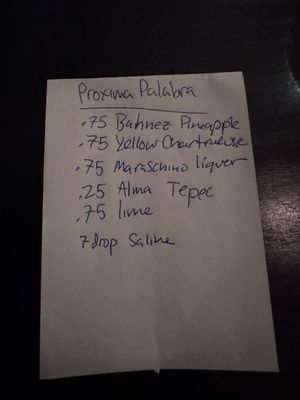 Proxima Palabra
.75 Bahnez Pineapple
.75 Yellow Chartreuse
.75 Maraschino liquer
.25 Alma Tepec
.75 lime
7 drop Saline